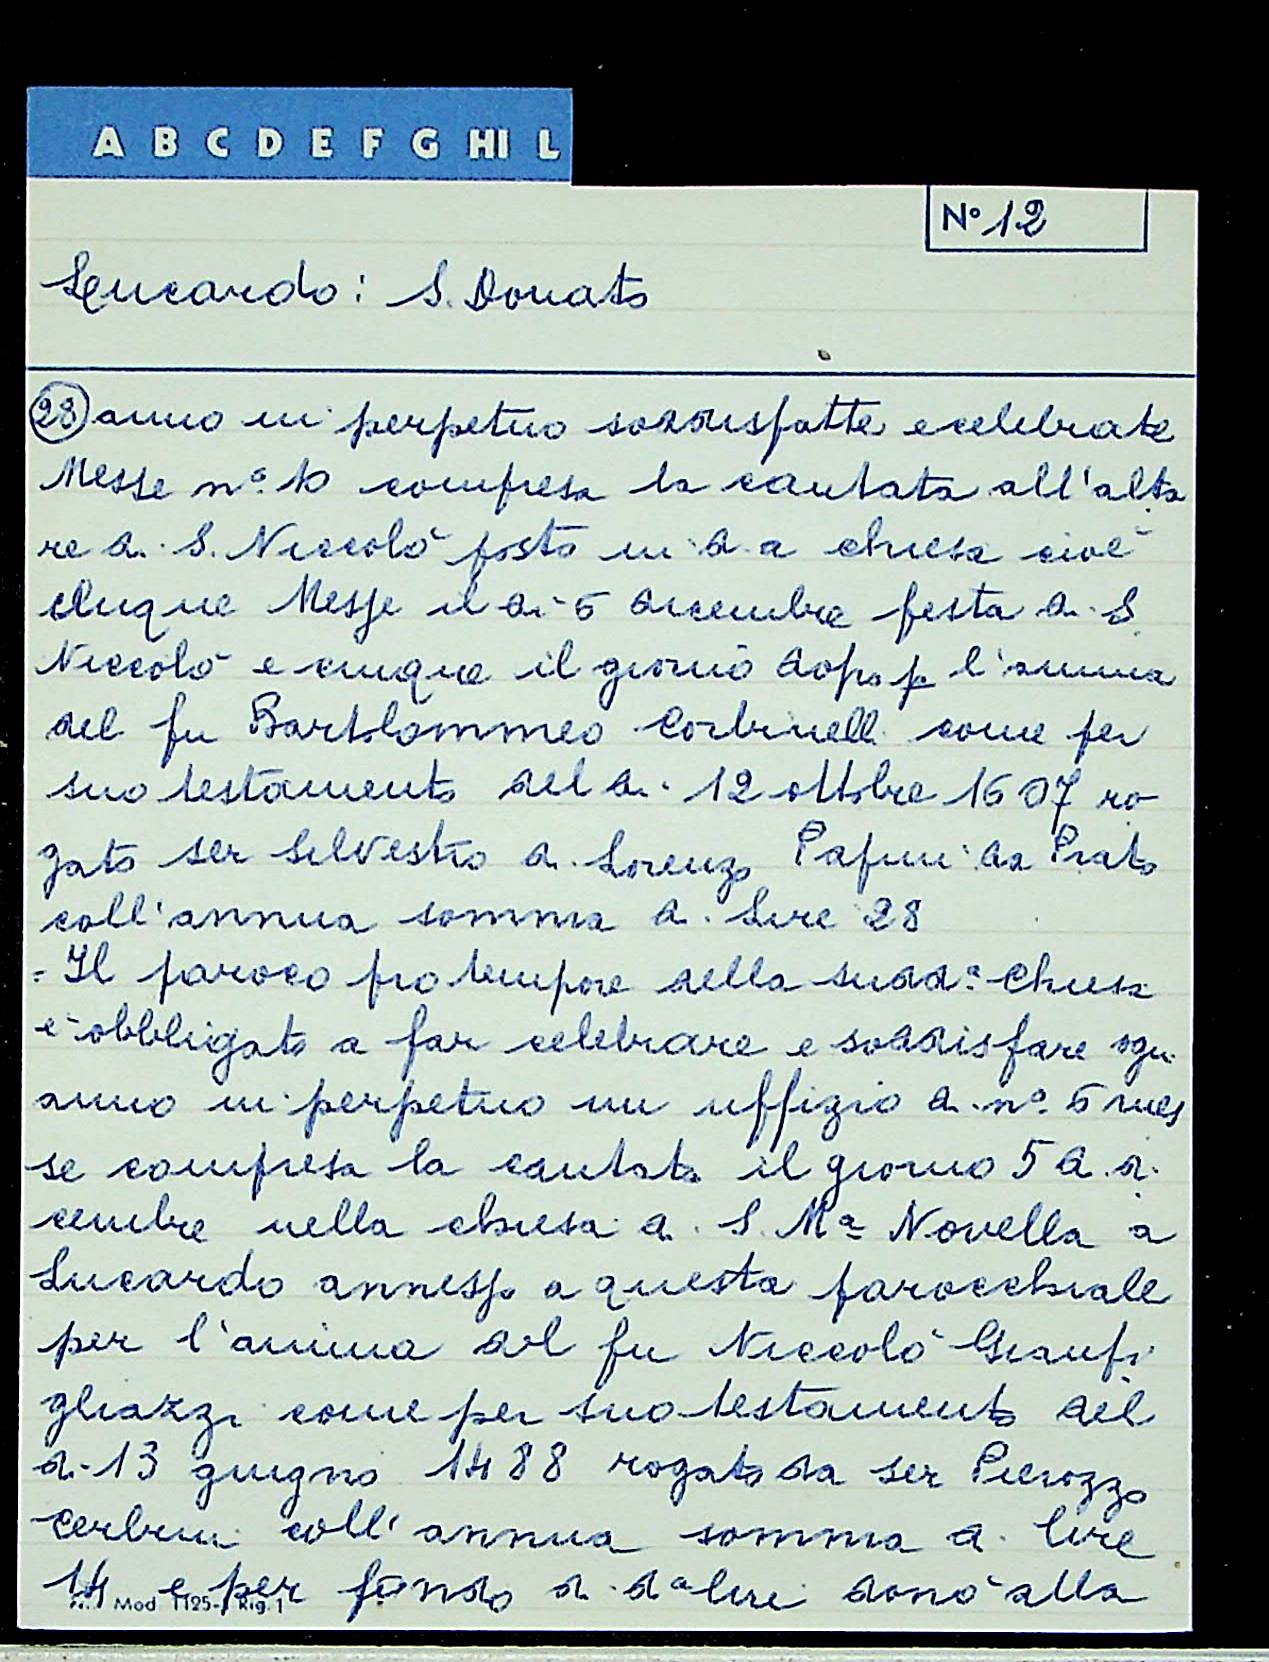 A B C D E F G HI L
N° 12
Lucardo: S. Donato
28 anno in perpetuo soddisfatte e celebrate
Messe n.° 10 compresa la cantata all'alta
re di S. Niccolò posto in d.a chiesa cioè
cinque Messe il dì 6 dicembre festa di S
Niccolò e cinque il giorno dopo p l'anima
del fu Bartolommeo Corbinelli come per
suo testamento del dì 12 ottobre 1607 ro
gato ser Silvestro di Lorenzo Papini da Prato
coll'annua somma di Lire 28
- Il paroco pro tempore della sudd.a Chiesa
è obbligato a far celebrare e soddisfare ogni
anno in perpetuo un uffizio di n.° 6 mes
se compresa la cantata il giorno 5 di di
cembre nella chiesa di S. M.a Novella a
Lucardo annessa a questa parocchiale
per l'anima del fu Niccolò Gianfi
gliazzi come per suo testamento del
dì 13 giugno 1488 rogato da ser Pierozzo
Cerbini coll'annua somma di lire
14 e per fondo di d.a lire donò alla
Mod 1125-/Rig.1